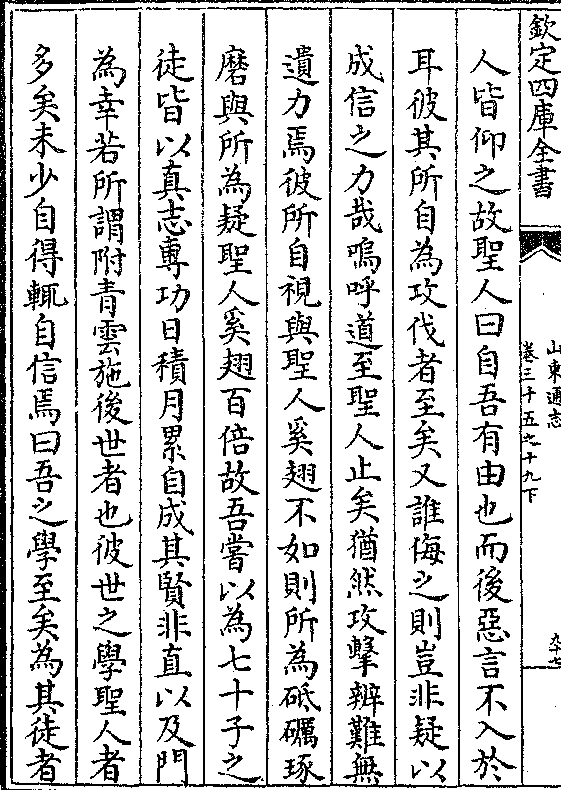 欽定四庫全書
山東通志
卷三十五之十九下
九十七
人皆仰之故聖人曰自吾有由也而後惡言不入於
耳彼其所自為攻伐者至矣又誰侮之則豈非疑以
成信之力哉嗚呼道至聖人止矣猶然攻擊辨難無
遺力焉彼所自視與聖人奚翅不如則所為砥礪琢
磨與所為疑聖人奚翅百倍故吾嘗以為七十子之
徒皆以真志專功日積月累自成其賢非直以及門
為幸若所謂附青雲施後世者也彼世之學聖人者
多矣未少自得輒自信焉曰吾之學至矣為其徒者